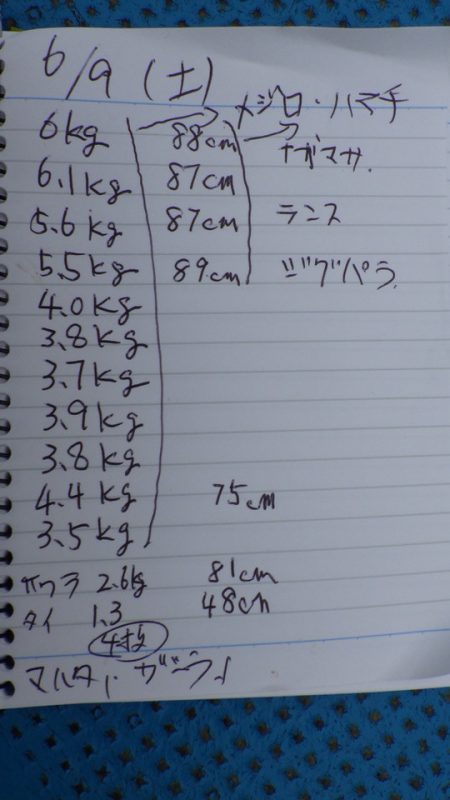 6/9 (土)
メジロ・ハマチ
6kg 88cm ナガマサ.
6.1kg 87cm
5.6kg 87cm ランス
5.5kg 89cm ジグパラ.
4.0kg
3.8kg
3.7kg
3.9kg
3.8kg
4.4kg 75cm
3.5kg
サワラ 2.6kg 81cm
タイ 1.3 48cm
マハタ, ガシラ